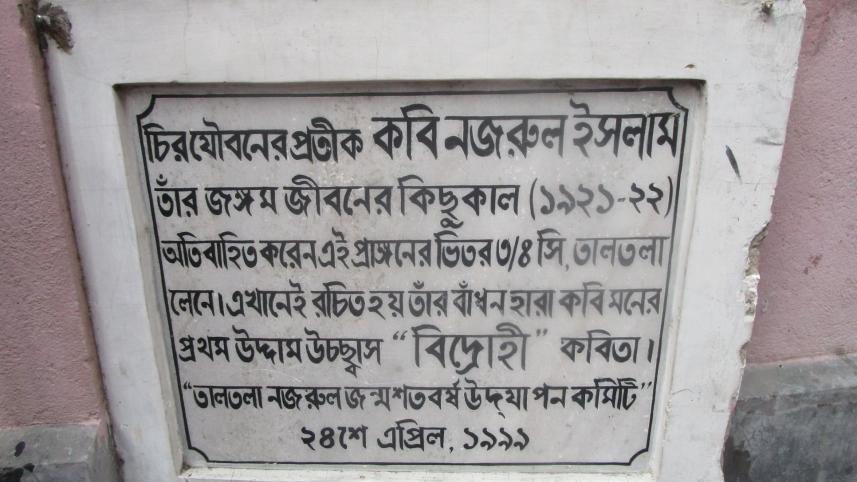 চির যৌবনের প্রতীক কবি নজরুল ইসলাম
তাঁর জঙ্গম জীবনের কিছুকাল (১৯২১-২২)
অতিবাহিত করেন এই প্রাঙ্গনের ভিতর ৩/৪ সি, তালতলা
লেনে। এখানেই রচিত হয় তাঁর বাঁধন হারা কবি মনের
প্রথম উদ্দাম উচছ্বাস “বিদ্রোহী” কবিতা।
“তালতলা নজরুল জন্মশতবর্ষ উদ্‌যাপন কমিটি”
২৪শে এপ্রিল, ১৯৯৯